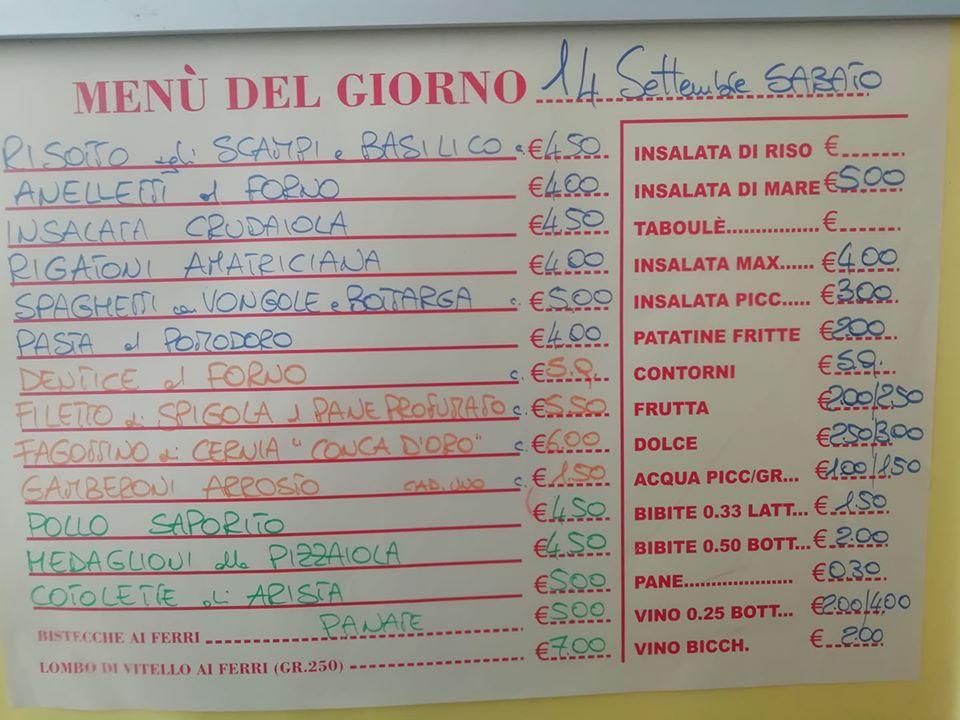 MENÙ DEL GIORNO 14 Settembre SABATO
RISOTTO agli SCAMPI e BASILICO c. €4.50
ANELLETTI al FORNO €4.00
INSALATA CRUDAIOLA €4.50
RIGATONI AMATRICIANA €4.00
SPAGHETTI con VONGOLE e BOTTARGA c. €5.00
PASTA al POMODORO €4.00
DENTICE al FORNO c. €S.q.
FILETTO di SPIGOLA al PANE PROFUMATO c. €5.50
FAGOTTINO di CERNIA "CONCA D'ORO" c. €6.00
GAMBERONI ARROSTO CAD. UNO c. €1.50
POLLO SAPORITO €4.50
MEDAGLIONI alla PIZZAIOLA €4.50
COTOLETTE di ARISTA €5.00
BISTECCHE AI FERRI PANATE €5.00
LOMBO DI VITELLO AI FERRI (GR.250) €7.00
INSALATA DI RISO €
INSALATA DI MARE €5.00
TABOULÈ................ €
INSALATA MAX...... €4.00
INSALATA PICC..... €3.00
PATATINE FRITTE €2.00
CONTORNI €S.q.
FRUTTA €2.00/2.50
DOLCE €2.50/3.00
ACQUA PICC/GR... €1.00/1.50
BIBITE 0.33 LATT... €1.50
BIBITE 0.50 BOTT... €2.00
PANE.................... €0.30
VINO 0.25 BOTT... €2.00/4.00
VINO BICCH. €2.00